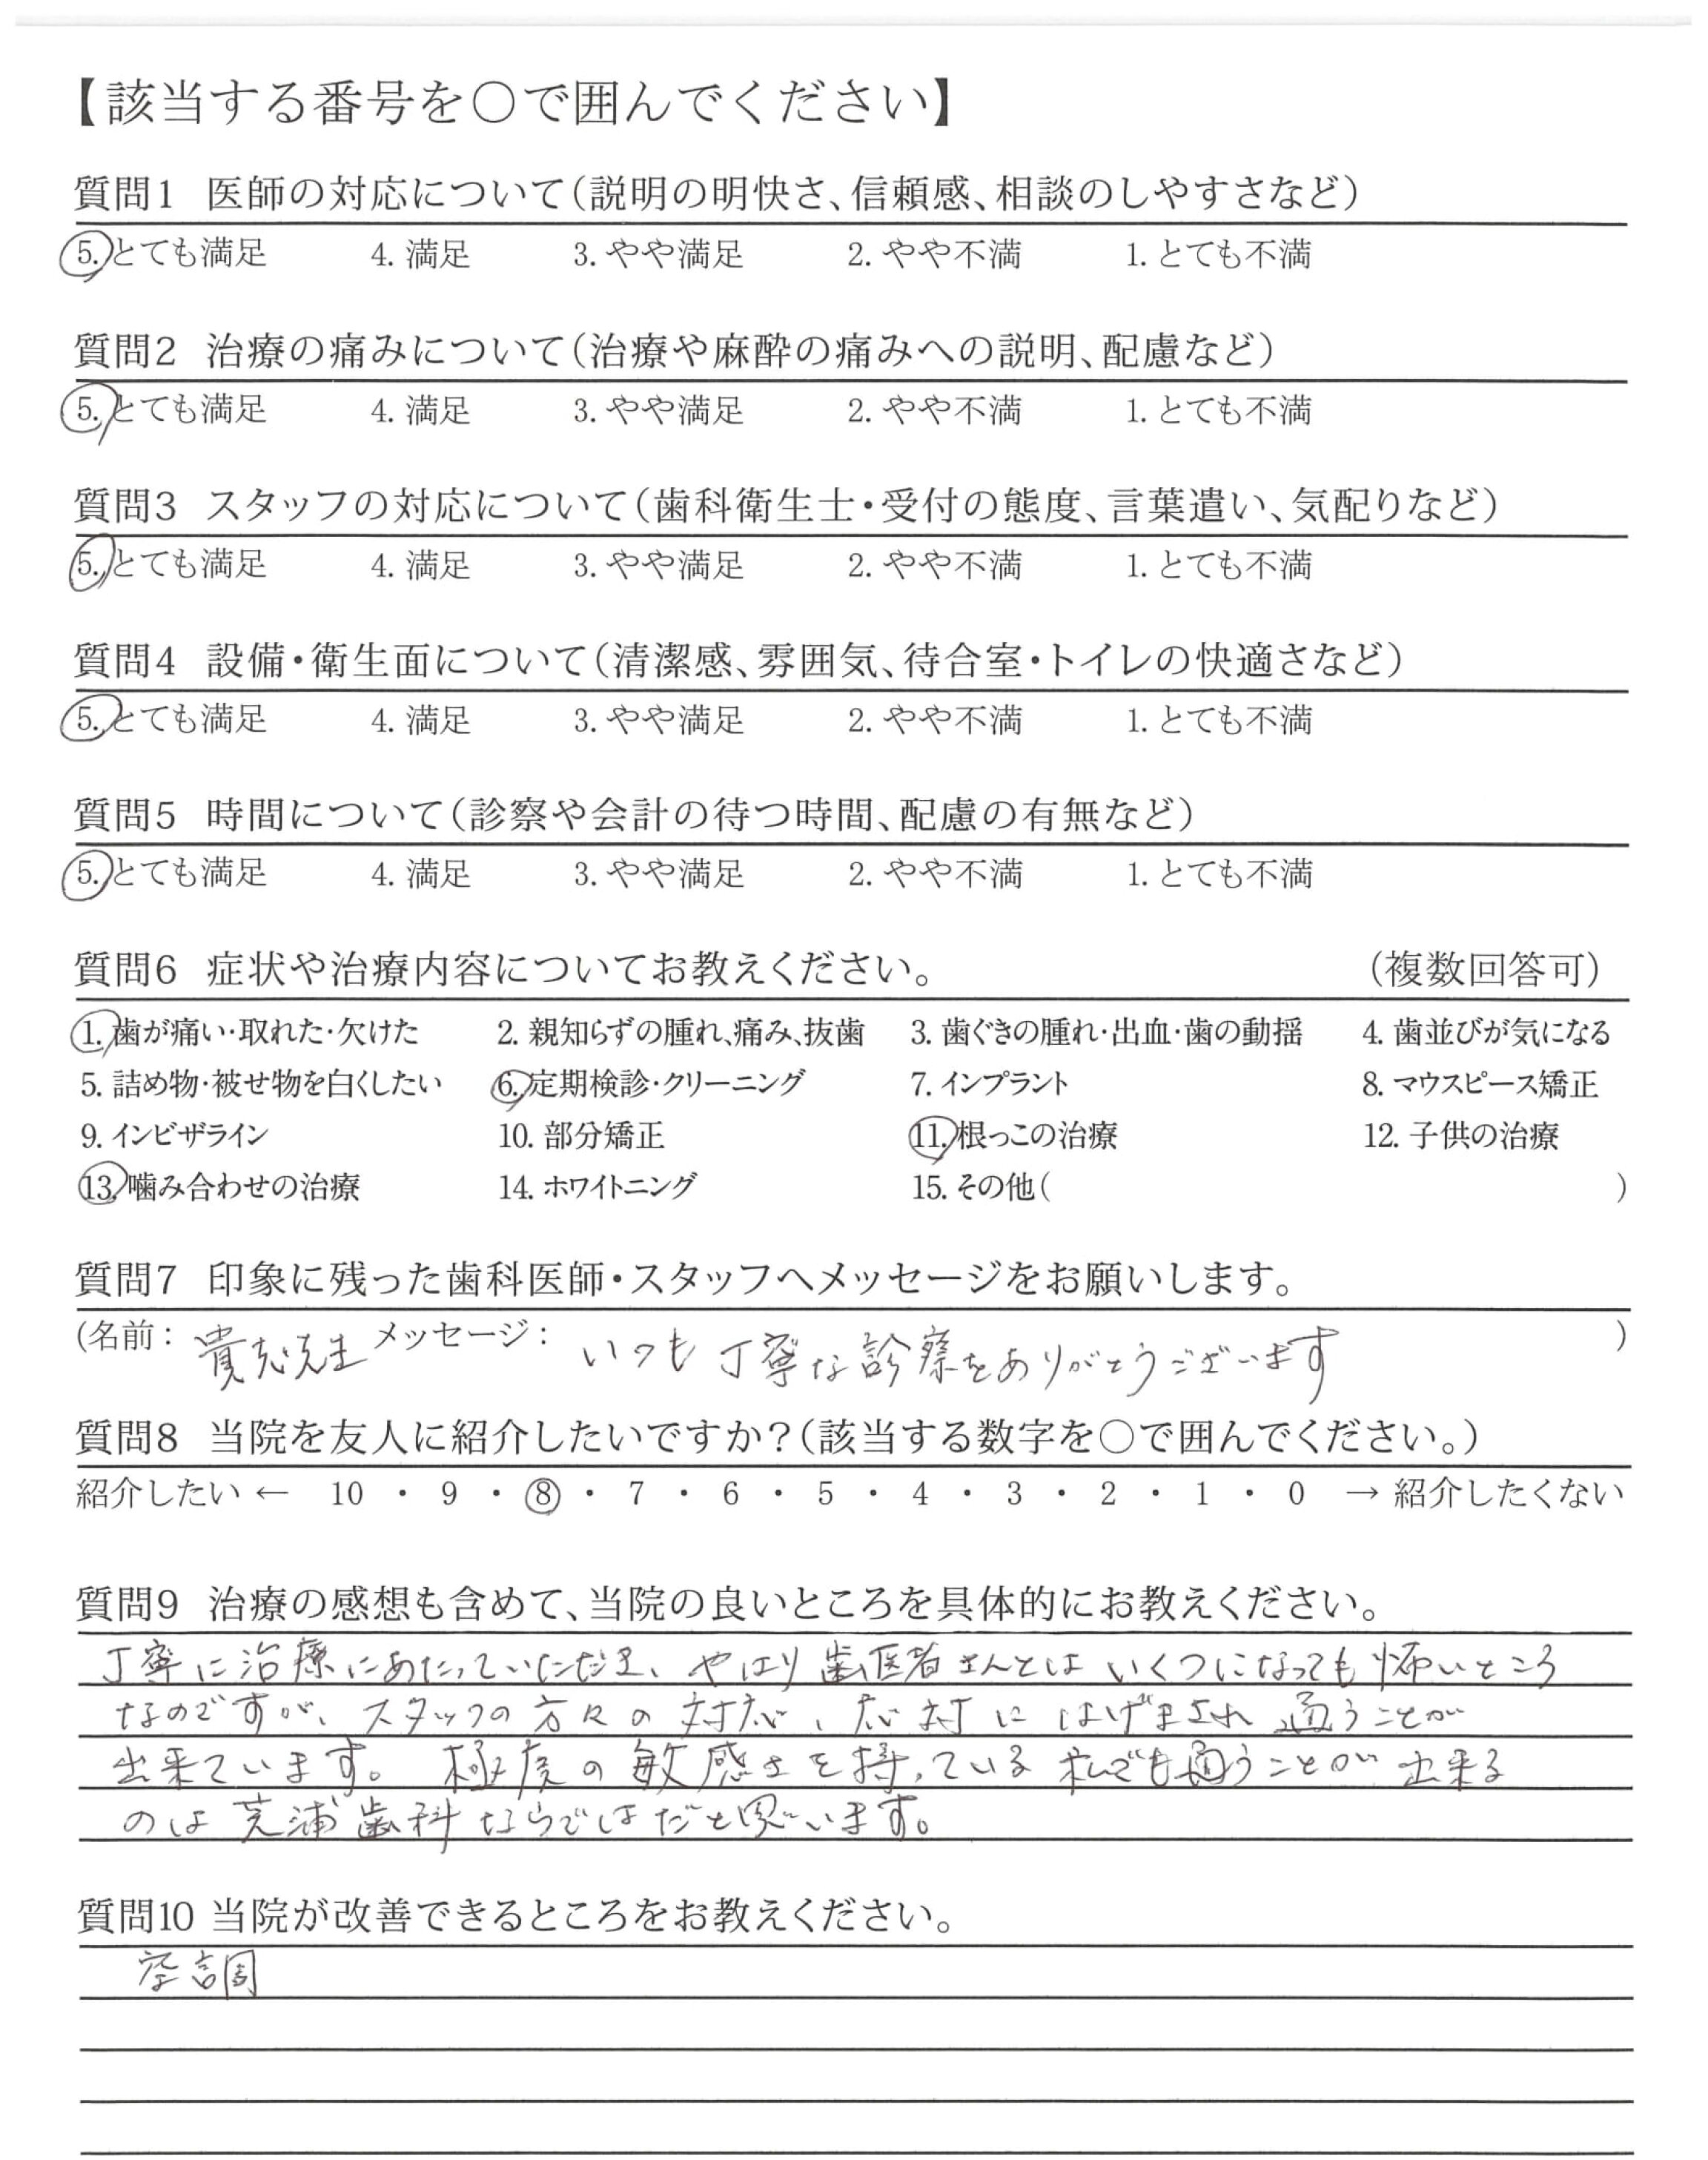 【該当する番号を○で囲んでください】
質問1 医師の対応について(説明の明快さ、信頼感、相談のしやすさなど)
5. とても満足 4. 満足 3. やや満足 2. やや不満 1. とても不満
質問2 治療の痛みについて(治療や麻酔の痛みへの説明、配慮など)
5. とても満足 4. 満足 3. やや満足 2. やや不満 1. とても不満
質問3 スタッフの対応について(歯科衛生士・受付の態度、言葉遣い、気配りなど)
5. とても満足 4. 満足 3. やや満足 2. やや不満 1. とても不満
質問4 設備・衛生面について(清潔感、雰囲気、待合室・トイレの快適さなど)
5. とても満足 4. 満足 3. やや満足 2. やや不満 1. とても不満
質問5 時間について(診察や会計の待つ時間、配慮の有無など)
5. とても満足 4. 満足 3. やや満足 2. やや不満 1. とても不満
質問6 症状や治療内容についてお教えください。 (複数回答可)
1. 歯が痛い・取れた・欠けた 2. 親知らずの腫れ、痛み、抜歯 3. 歯ぐきの腫れ・出血・歯の動揺 4. 歯並びが気になる
5. 詰め物・被せ物を白くしたい 6. 定期検診・クリーニング 7. インプラント 8. マウスピース矯正
9. インビザライン 10. 部分矯正 11. 根っこの治療 12. 子供の治療
13. 噛み合わせの治療 14. ホワイトニング 15. その他( )
質問7 印象に残った歯科医師・スタッフへメッセージをお願いします。
(名前: 貴志先生 メッセージ: いつも丁寧な診察をありがとうございます )
質問8 当院を友人に紹介したいですか?(該当する数字を○で囲んでください。)
紹介したい ← 10 ・ 9 ・ 8 ・ 7 ・ 6 ・ 5 ・ 4 ・ 3 ・ 2 ・ 1 ・ 0 → 紹介したくない
質問9 治療の感想も含めて、当院の良いところを具体的にお教えください。
丁寧に治療にあたっていただき、やはり歯医者さんとはいくつになっても怖いところ
なのですが、スタッフの方々の対応、応対にはげまされ通うことが
出来ています。極度の敏感さを持っている私でも通うことが出来る
のは芝浦歯科ならではだと思います。
質問10 当院が改善できるところをお教えください。
空調